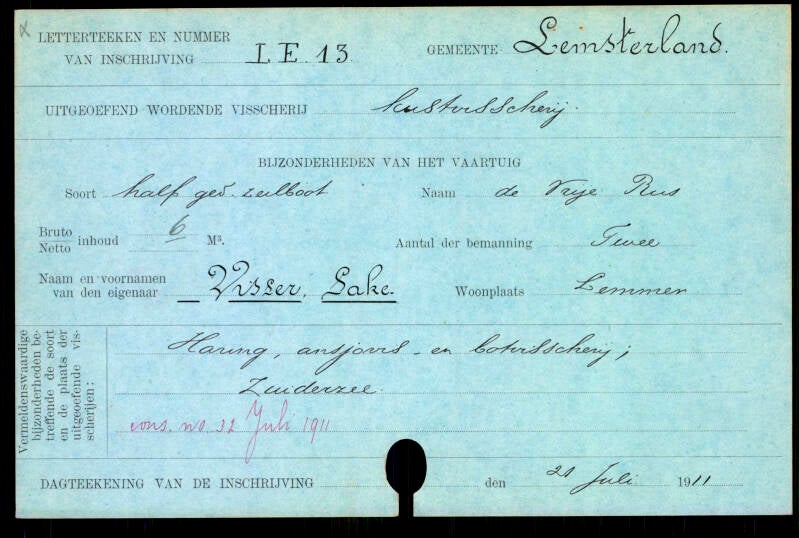 LETTERTEEKEN EN NUMMER
VAN INSCHRIJVING LE. 13. GEMEENTE Lemsterland.
UITGEOEFEND WORDENDE VISSCHERIJ kustvisscherij.
BIJZONDERHEDEN VAN HET VAARTUIG
Soort half ged. zeilboot Naam de Vrije Rus
Bruto
Netto inhoud 6 M³. Aantal der bemanning Twee
Naam en voornamen
van den eigenaar Visser, Sake. Woonplaats Lemmer
Vermeldenswaardige
bijzonderheden be-
treffende de soort
en de plaats der
uitgeoefende vis-
scherijen:
Haring, ansjovis- en botvisscherij;
Zuiderzee.
cons. no. 32 Juli 1911
DAGTEEKENING VAN DE INSCHRIJVING den 21 Juli 1911